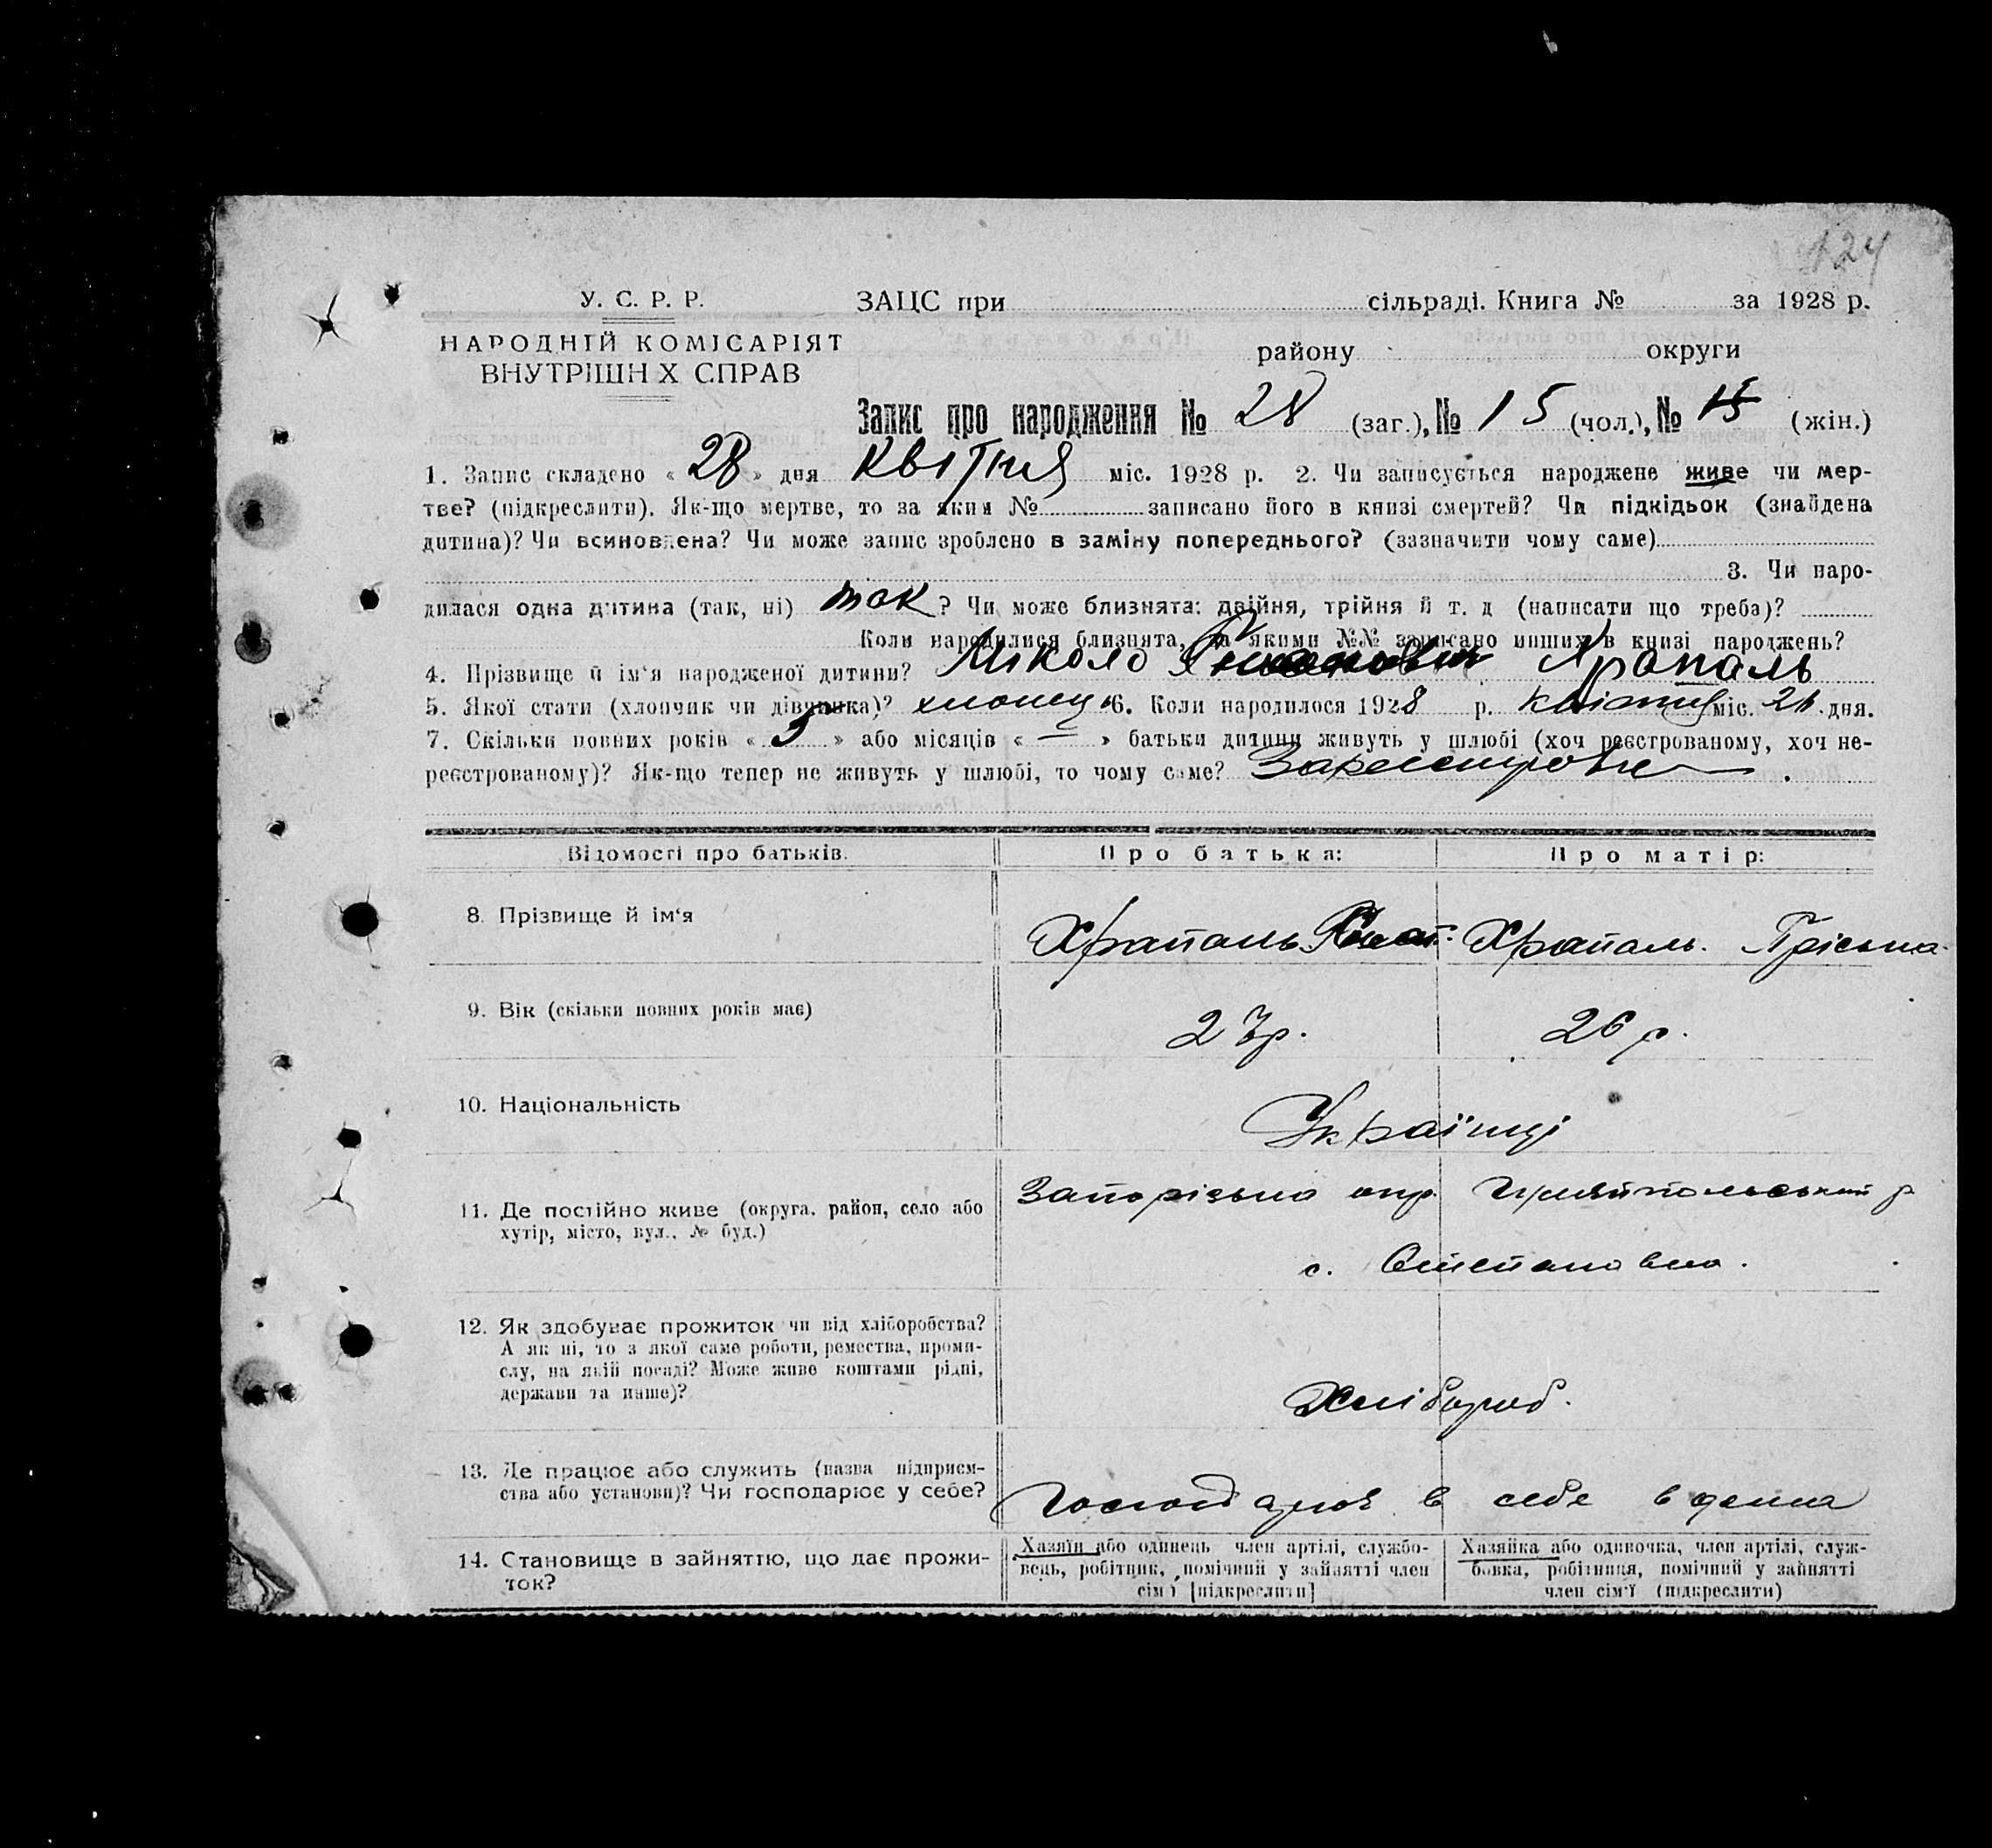 124
У. С. Р. Р.
ЗАЦС при сільраді. Книга № за 1928 р.
НАРОДНІЙ КОМІСАРІЯТ
ВНУТРІШН Х СПРАВ
району округи
Запис про народження № 28 (заг.), № 15 (чол.), № 15 (жін.)
1. Запис складено « 28 » дня квітня міс. 1928 р. 2. Чи записується народжене живе чи мер-
тве? (підкреслити). Як-що мертве, то за яким № записано його в книзі смертей? Чи підкідьок (знайдена
дитина)? Чи всиновлена? Чи може запис зроблено в заміну попереднього? (зазначити чому саме)
3. Чи наро-
дилася одна дитина (так, ні) так ? Чи може близнята: двійня, трійня й т. д (написати що треба)?
Коли народилися близнята, за якими №№ записано инших в книзі народжень?
4. Прізвище й ім'я народженої дитини? Микола Храпаль
5. Якої стати (хлопчик чи дівчинка)? хлопец 6. Коли народилося 1928 р. квітня міс. 26 дня.
7. Скільки повних років « 5 » або місяців « — » батьки дитини живуть у шлюбі (хоч реєстрованому, хоч не-
реєстрованому)? Як-що тепер не живуть у шлюбі, то чому саме?
Відомості про батьків. Про батька: Про матір:
8. Прізвище й ім'я Храпаль Храпаль. Пріська
9. Вік (скільки повних років має) 27 р. 26 р.
10. Національність Українці
11. Де постійно живе (округа, район, село або Запорізька окр. Гуляйпольський р
хутір, місто, вул., № буд.)
с. Степановка.
12. Як здобуває прожиток чи від хліборобства?
А як ні, то з якої саме роботи, ремества, проми-
слу, на якій посаді? Може живе коштами рідні,
держави та инше)? Хлібороб.
13. Де працює або служить (назва підприєм-
ства або установи)? Чи господарює у себе? в себе вдома
14. Становище в зайняттю, що дає прожи- Хазяїн або одинець член артілі, службо- Хазяйка або одиночка, член артілі, служ-
ток? вець, робітник, помічний у зайнятті член бовка, робітниця, помічний у зайнятті
сім'ї [підкреслити] член сім'ї (підкреслити)